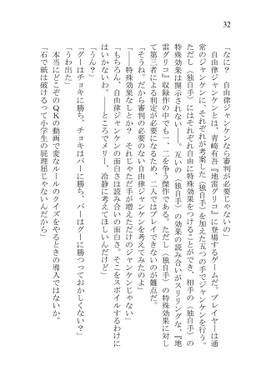 32
「なに？　自由律ジャンケンなら審判が必要じゃないの」
自由律ジャンケンとは、青崎有吾『地雷グリコ』に登場するゲームだ。プレイヤーは通
常のジャンケンに、それぞれが考案した〈独自手〉を加えた五つの手でジャンケンを行う。
ただし〈独自手〉にはそれぞれ自由に特殊効果をつけることができ、相手の〈独自手〉の
特殊効果は開示されない。互いの〈独自手〉の効果の読み合いがスリリングな、『地
雷グリコ』収録作の中でも一、二を争う傑作である。ただし〈独自手〉の特殊効果に対し
て第三者による判定が必要になるため、二人ではプレイできないのが難点だ。
「そうね。だから審判の必要のない自由律ジャンケンを考えてみたのよ」
「――特殊効果なし？　それじゃただ手が増えただけのジャンケンじゃない」
「もちろん、自由律ジャンケンの面白さは読み合いの面白さ。そこをスポイルするわけに
はいかないわ。――ところでメリー、冷静に考えてほしいんだけど」
「うん？」
「グーはチョキに勝ち、チョキはパーに勝ち、パーはグーに勝つっておかしくない？」
「うわ出た」
本当にどこのＱＫの動画で変なルールのクイズをやるときの導入ではないか。
「石で紙は破けるって小学生の屁理屈じゃないんだから」